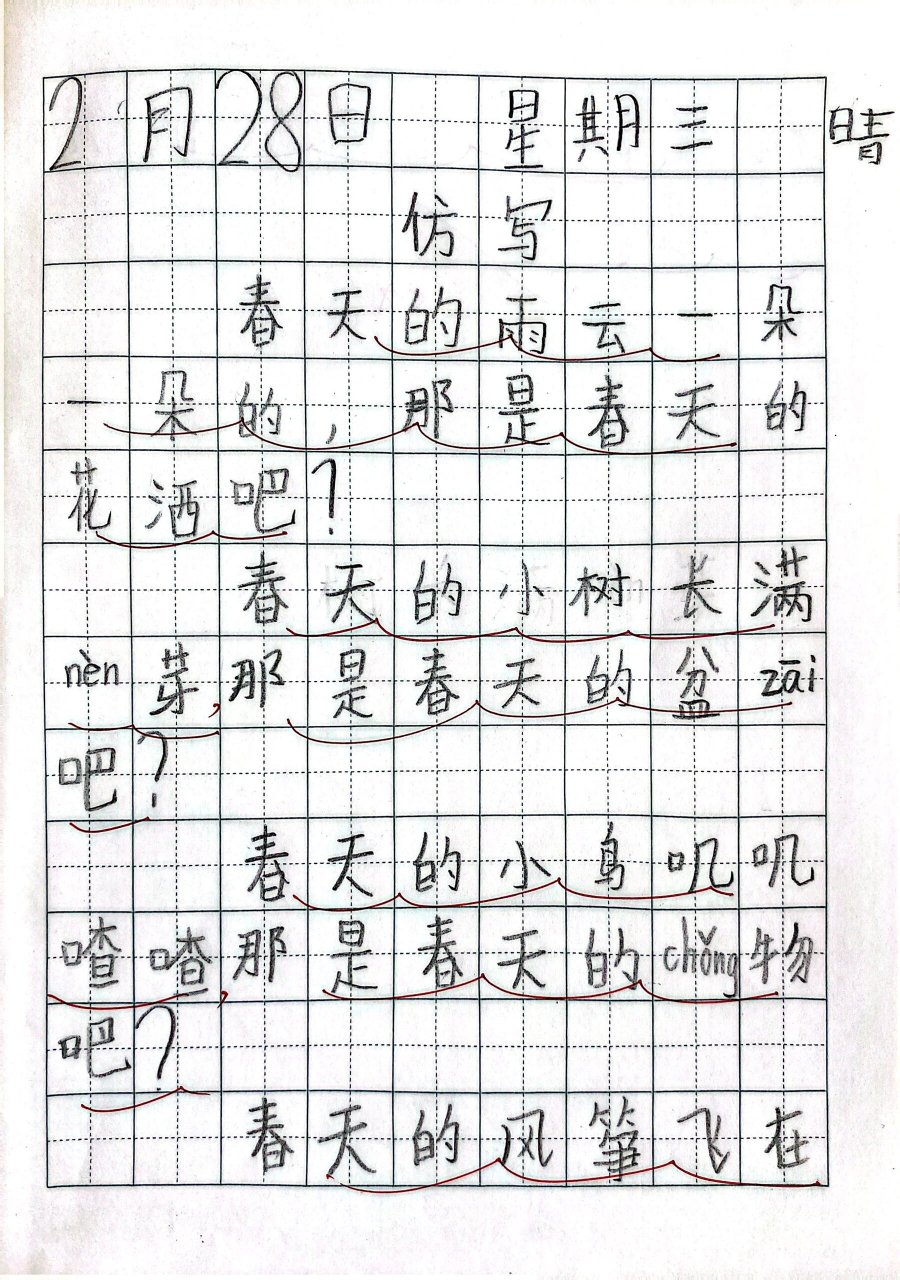 2月28日 星期三 晴
仿写
春天的雨云一朵
一朵的，那是春天的
花洒吧？
春天的小树长满
nèn芽，那是春天的盆zāi
吧？
春天的小鸟叽叽
喳喳，那是春天的chǒng物
吧？
春天的风筝飞在